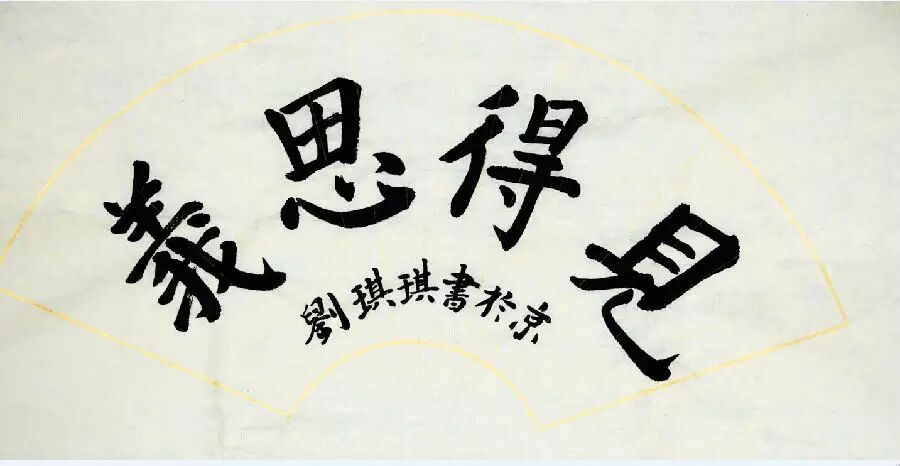 見得思義
劉琪琪書於京